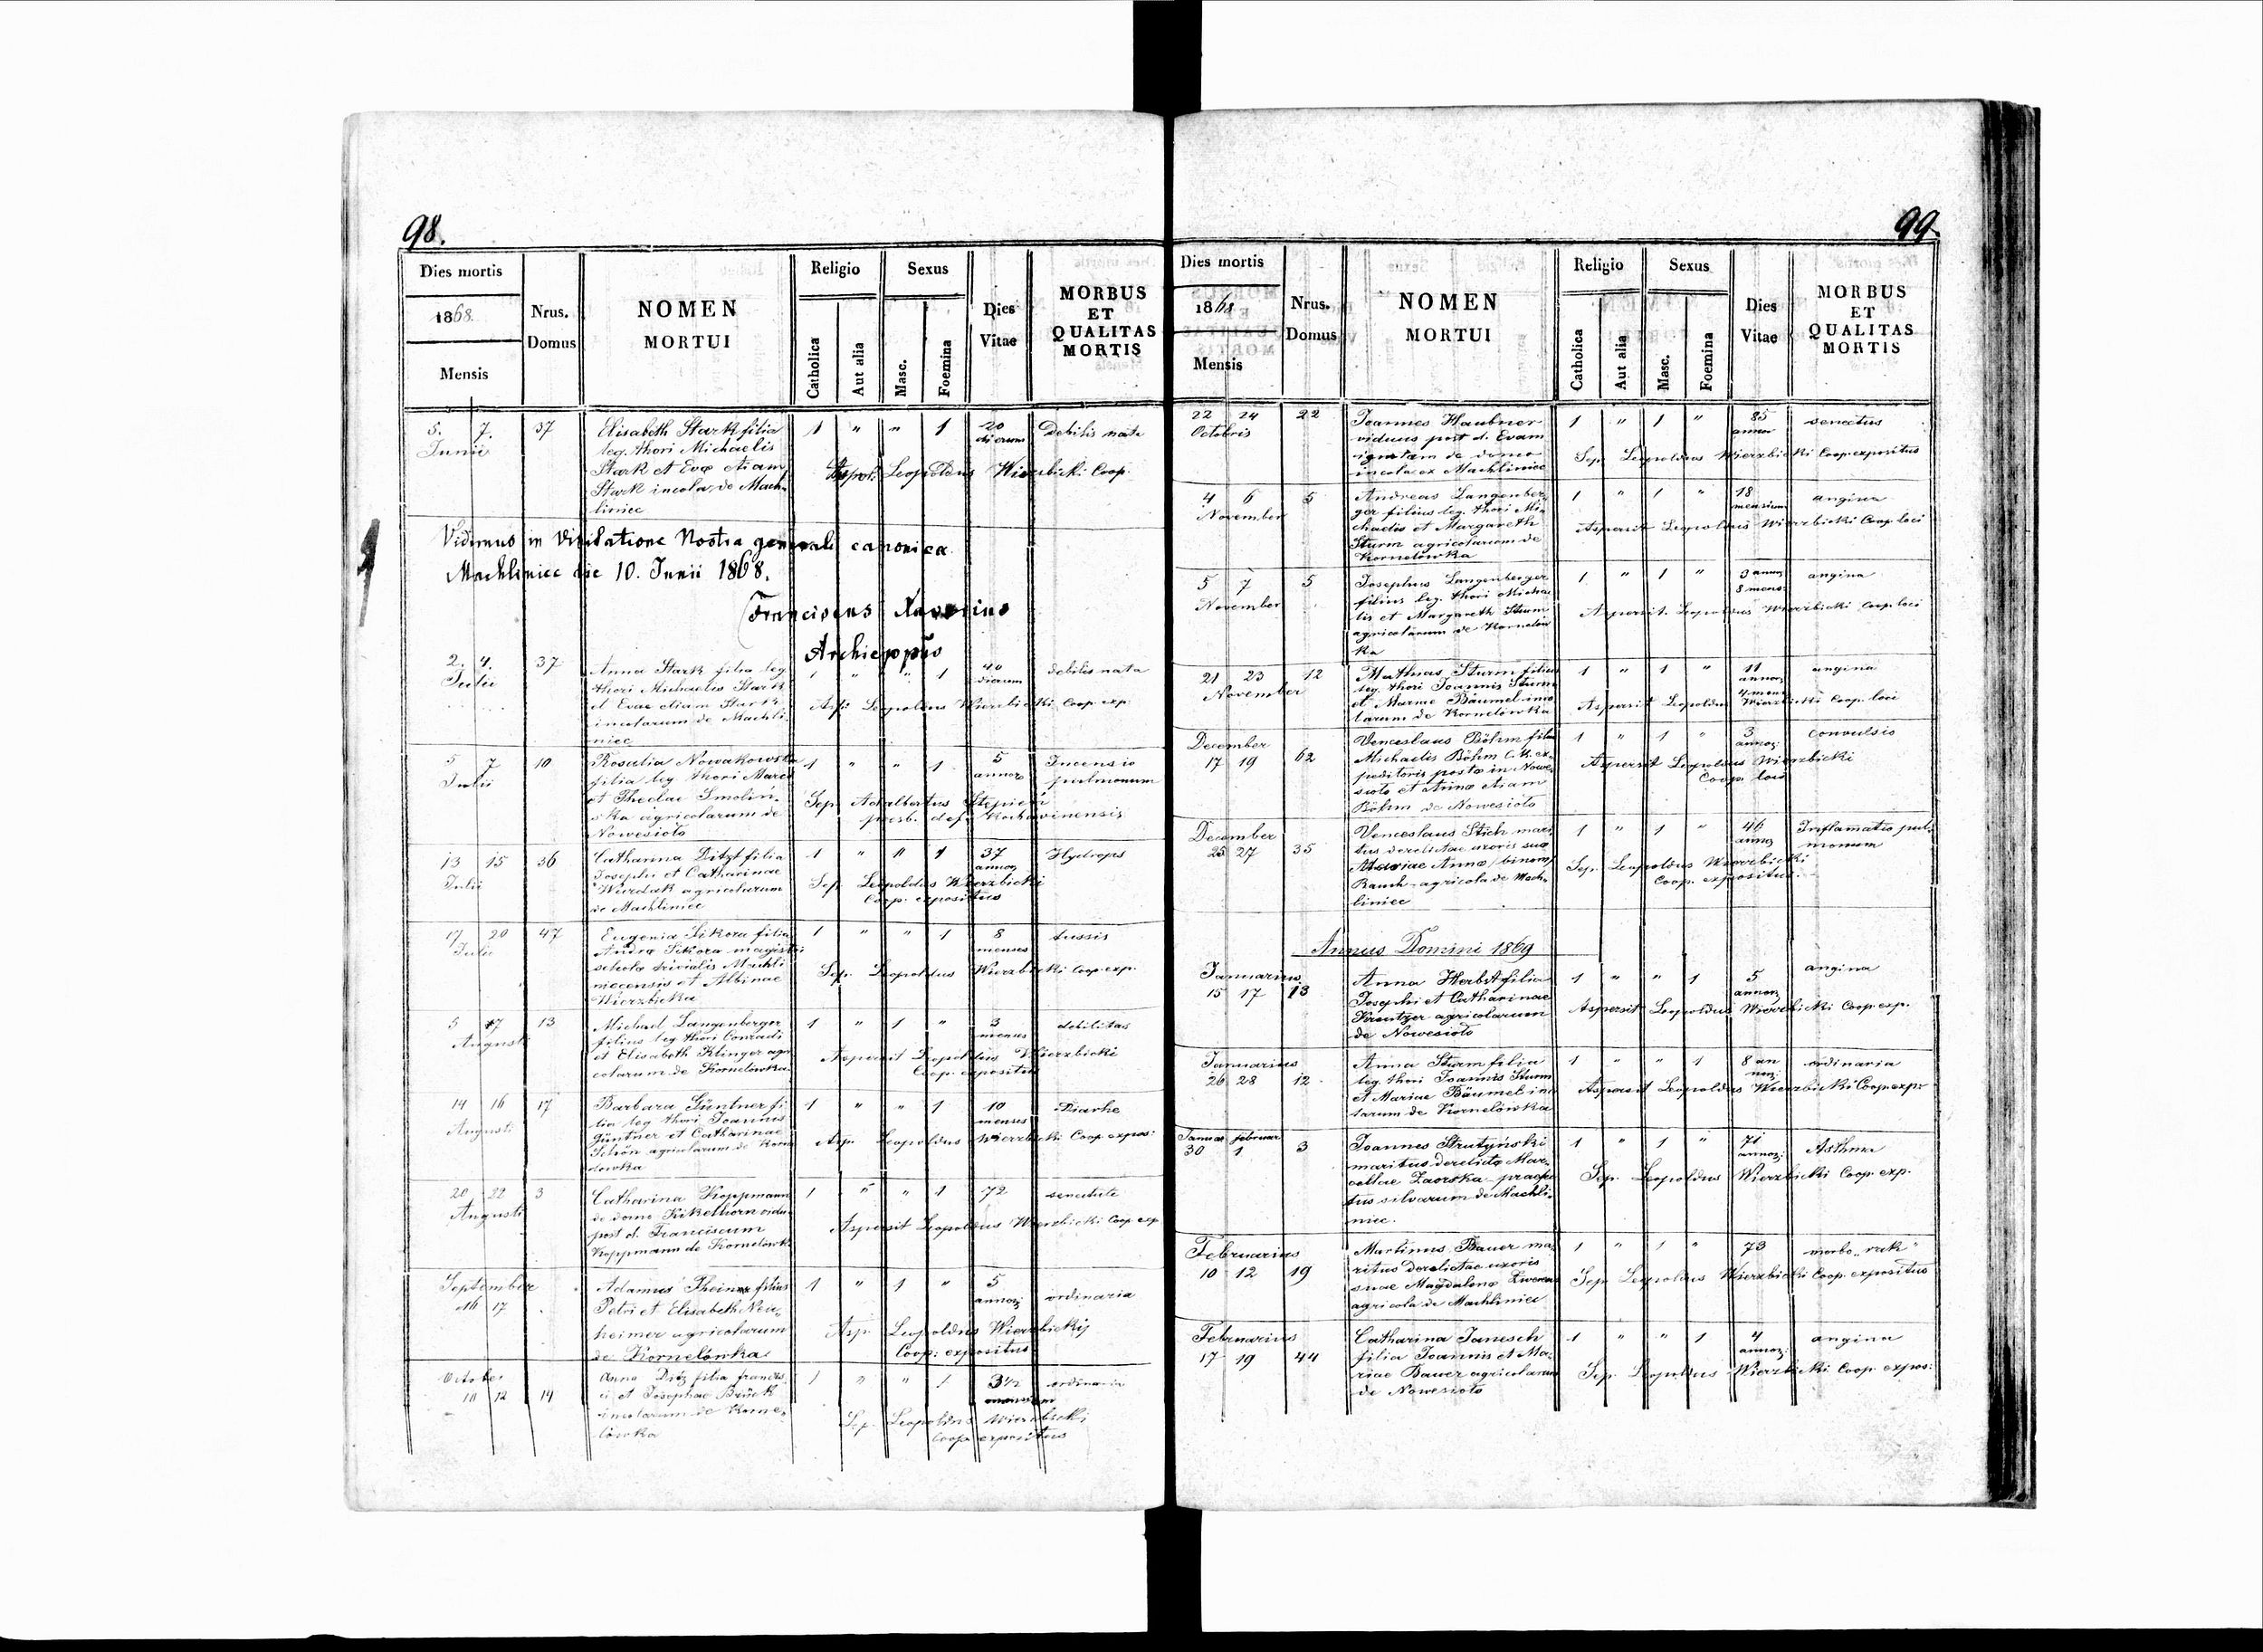 98.
Dies mortis
1868.
Mensis
Nrus.
Domus
NOMEN
MORTUI
Religio
Catholica
Aut alia
Sexus
Masc.
Foemina
Dies
Vitae
MORBUS
ET
QUALITAS
MORTIS
5. 7. 37 Elisabeth Stark filia 1 " " 1 20 Debilis nata
Junii leg. thori Michaelis dierum
Stark et Evae etiam Leopoldus Wierzbicki Coop.
Stark incola de Mach-
liniec
Vidimus in Visitatione Nostra generali canonica
Machliniec die 10. Junii 1868.
Franciscus
Archieppus
2. 4. 37 Anna Stark filia leg. 1 " " 1 40 debilis nata
Julii thori Michaelis Stark dierum
et Evae etiam Stark Asp. Leopoldus Wierzbicki Coop. exp.
incolarum de Machli-
niec
5 7 10 Rosalia Nowakowska 1 " " 1 5 Incensio
Julii filia leg. thori Marci annor. pulmonum
et Theclae Smoliń- Sep. Adalbertus Stepień
ska agricolarum de presb. def. Kochavinensis
Nowesioło
13 15 36 Catharina Ditzt filia 1 " " 1 37 Hydrops
Julii Josephi et Catharinae annor.
Wurdak agricolarum Sep. Leopoldus Wierzbicki
de Machliniec Coop. expositus
17 20 47 Eugenia Sikora filia 1 " " 1 8 tussis
Julii Andreae Sikora magistri menses
schola trivialis Machli Sep. Leopoldus Wierzbicki Coop. exp.
niecensis et Albinae
Wierzbicka
5 7 13 Michael Langenberger 1 " 1 " 3 debilitas
Augusti filius leg. thori Conradi menses
et Elisabeth Klinger agri Aspersit Leopoldus Wierzbicki
colarum de Kornelówka Coop. expositus
14 16 17 Barbara Güntner fi- 1 " " 1 10 Diarhe
Augusti lia leg. thori Joannis menses
Güntner et Catharinae Asp. Leopoldus Wierzbicki Coop. expos:
Schön agricolarum de Korne
lówka
20 22 3 Catharina Koppmann 1 " " 1 72 senectute
Augusti de domo Kikelhorn vidua
post d. Franciscum Aspersit Leopoldus Wierzbicki Coop. exp
Koppmann de Kornelówk
September Adamus Thein filius 1 " 1 " 5 ordinaria
16 17 Petri et Elisabeth Neu- annor.
heimer agricolarum Asp. Leopoldus Wierzbicki
de Kornelówka Coop: expositus
October Anna Ditz filia francis- 1 " " 1 3½ ordinaria
10 12 14 ci et Josephae Brück
incolarum de Korne- Sep. Leopoldus Wierzbicki
lówka Coop. expositus
99.
Dies mortis
1868
Mensis
Nrus.
Domus
NOMEN
MORTUI
Religio
Catholica
Aut alia
Sexus
Masc.
Foemina
Dies
Vitae
MORBUS
ET
QUALITAS
MORTIS
22 24 22 Joannes Haubner 1 " 1 " 85 senectus
Octobris viduus post d. Evam annor
ignotam de domo Sep. Leopoldus Wierzbicki Coop. expositus
incola ex Machliniec
4 6 5 Andreas Langenber- 1 " 1 " 18 angina
November ger filius leg. thori Mi- mensium
chaelis et Margareth Aspersit Leopoldus Wierzbicki Coop. loci
Sturm agricolarum de
Kornelówka
5 7 5 Josephus Langenberger 1 " 1 " 3 annor. angina
November filius leg. thori Michae 8 mens.
lis et Margareth Sturm Aspersit Leopoldus Wierzbicki Coop. loci
agricolarum de Kornelów
ka
21 23 12 Mathias Sturm filius 1 " 1 " 11 angina
November leg. thori Joannis Sturm annor. 4 men
et Mariae Bäumel inco Aspersit Leopoldus Wierzbicki Coop. loci
larum de Kornelówka
December Venceslaus Böhm filiu 1 " 1 " 3 convulsio
17 19 62 Michaelis Böhm C. R. ex- annor.
peditoris posta in Nowe- Aspersit Leopoldus Wierzbicki
sioło et Anna etiam Coop. loci
Böhm de Nowesioło
December Venceslaus Stich mari 1 " 1 " 46 Inflamatio pul-
25 27 35 tus derelictae uxoris suae annor. monum
Mariae Anna (binom) Sep. Leopoldus Wierzbicki
Rauch agricola de Mach- Coop. expositus
liniec
Annus Domini 1869
Januarius Anna Herbst filia 1 " " 1 5 angina
15 17 13 Josephi et Catharinae annor.
Kreutzer agricolarum Aspersit Leopoldus Wierzbicki Coop. exp.
de Nowesioło
Januarius Anna Sturm filia 1 " " 1 8 an ordinaria
26 28 12 leg. thori Joannis Sturm nor.
et Mariae Bäumel inco Aspersit Leopoldus Wierzbicki Coop. exp.
larum de Kornelówka
Januar februar Joannes Strutyński 1 " 1 " 71 Asthma
30 1 3 maritus derelicta Mar- annor.
cellae Zaorska praefec Sep. Leopoldus Wierzbicki Coop. exp.
tus silvarum de Machli-
niec.
Februarius Martinus Bauer ma- 1 " 1 " 73 morbo "rak"
10 12 19 ritus derelictae uxoris
suae Magdalena Sep. Leopoldus Wierzbicki Coop. expositus
agricola de Machliniec
Februarius Catharina Janesch 1 " " 1 4 angina
17 19 44 filia Joannis et Ma- annor.
riae Bauer agricolarum Sep. Leopoldus Wierzbicki Coop. expos:
de Nowesioło